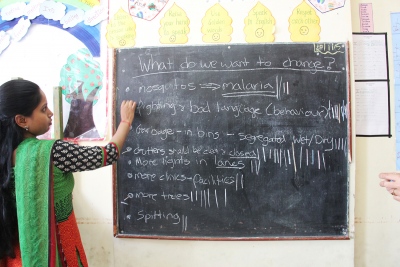 What do we want to change?
• mosquitos ⇒ malaria
fighting & bad language (behaviour)
Garbage - in bins - segregated Wet/Dry
Gutters should be closed
• More lights in lanes
• more clinics - facilities
• more trees
• Spitting